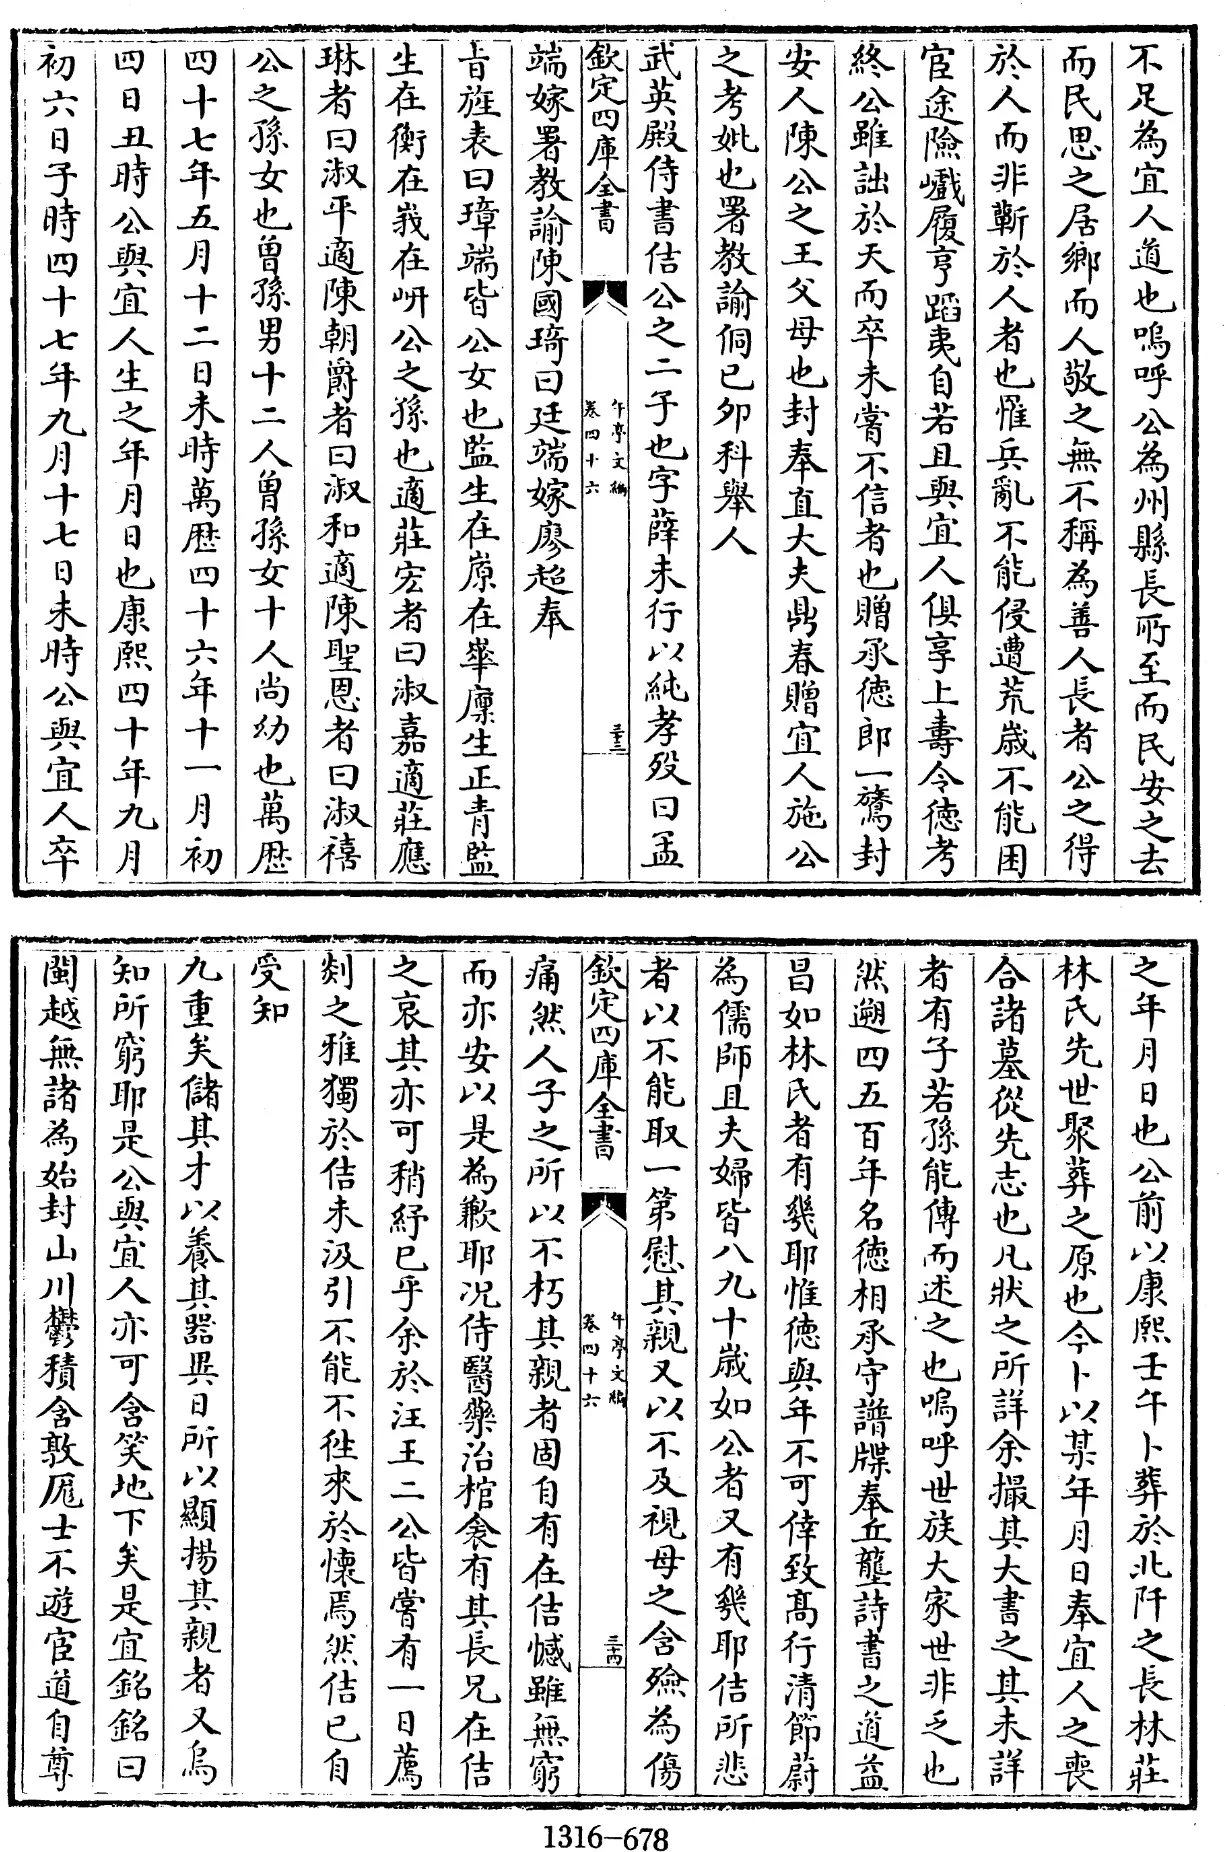 不足為宜人道也嗚呼公為州縣長所至而民安之去
而民思之居鄉而人敬之無不稱為善人長者公之得
於人而非蘄於人者也惟兵亂不能侵遭荒歲不能困
宦途險巇履亨蹈夷自若且與宜人俱享上壽令徳考
終公雖詘於天而卒未嘗不信者也贈承徳郎一鶱封
安人陳公之王父母也封奉直大夫鼎春贈宜人施公
之考妣也署教諭侗已夘科舉人
武英殿侍書佶公之二子也字薛未行以純孝殁曰孟
欽定四庫全書
午亭文編
卷四十六
三十三
端嫁署教諭陳國琦曰廷端嫁廖超奉
㫖旌表曰璋端皆公女也監生在原在華廪生正青監
生在衡在峩在岍公之孫也適莊宏者曰淑嘉適莊應
琳者曰淑平適陳朝爵者曰淑和適陳聖恩者曰淑禧
公之孫女也曽孫男十二人曽孫女十人尚幼也萬厯
四十七年五月十二日未時萬厯四十六年十一月初
四日丑時公與宜人生之年月日也康熙四十年九月
初六日子時四十七年九月十七日未時公與宜人卒
之年月日也公前以康熙壬午卜葬於北阡之長林莊
林氏先世聚葬之原也今卜以某年月日奉宜人之喪
合諸墓從先志也凡狀之所詳余撮其大書之其未詳
者有子若孫能傳而述之也嗚呼世族大家世非乏也
然遡四五百年名徳相承守譜牒奉丘壟詩書之道益
昌如林氏者有幾耶惟徳與年不可倖致髙行清節蔚
為儒師且夫婦皆八九十歲如公者又有幾耶佶所悲
者以不能取一第慰其親又以不及視母之含殮為傷
欽定四庫全書
午亭文編
卷四十六
三十四
痛然人子之所以不朽其親者固自有在佶憾雖無窮
而亦安以是為歉耶况侍醫藥治棺衾有其長兄在佶
之哀其亦可稍紓已乎余於汪王二公皆嘗有一日薦
剡之雅獨於佶未汲引不能不徃來於懷焉然佶已自
受知
九重矣儲其才以養其器異日所以顯揚其親者又烏
知所窮耶是公與宜人亦可含笑地下矣是宜銘銘曰
閩越無諸為始封山川鬱積含敦厖士不遊宦道自尊
1316-678